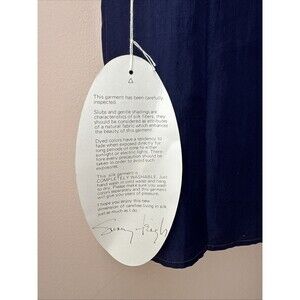 This garment has been carefully
inspected.
Slubs and gentle shadings are
characteristics of silk fibers, they
should be considered as attributes
of a natural fabric which enhances
the beauty of this garment.
Dyed colors have a tendency to
fade when exposed directly for
long periods of time to either
sunlight or electric lights. There-
fore every precaution should be
taken in order to avoid such
exposure.
This silk garment is
COMPLETELY WASHABLE. Just
hand wash in cold water and hang
to dry. Please make sure you wash
colors separately and this garment
will give you years of wear.
I hope you enjoy this new
dimension of carefree living in silk
just as much as I do.